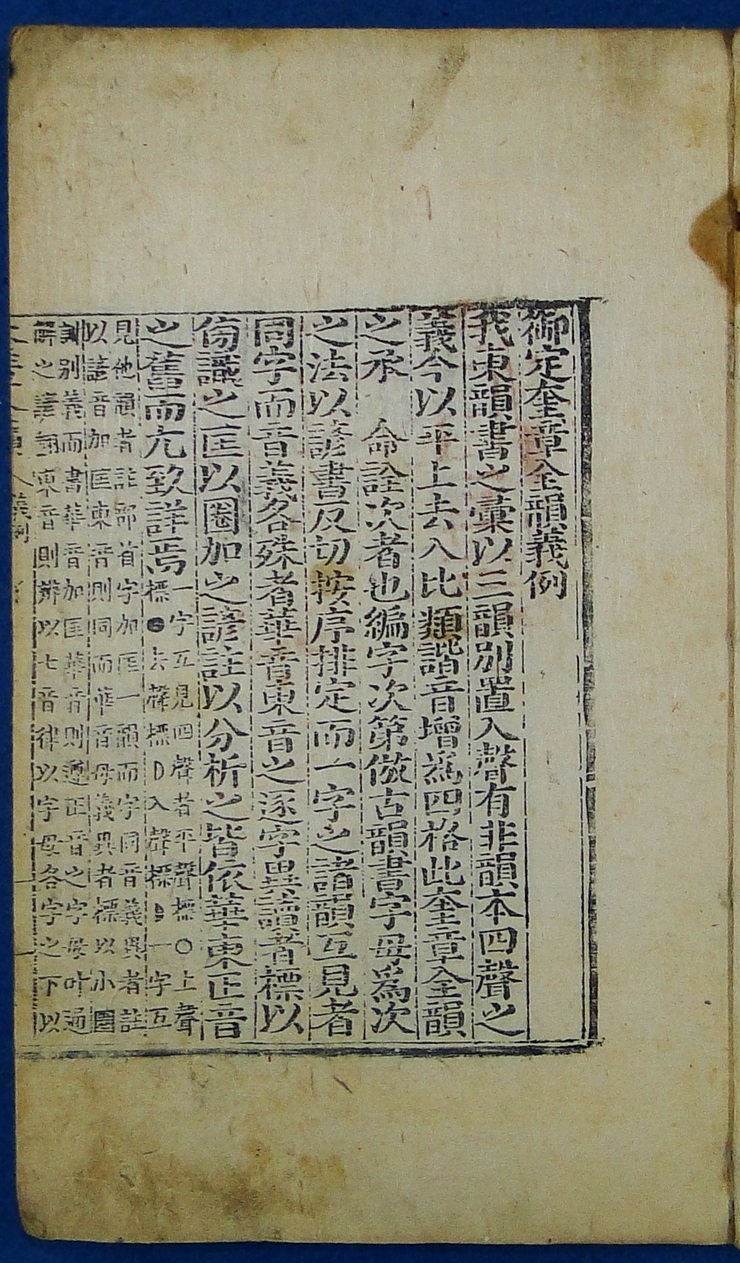 御定奎章全韻義例
我東韻書之彙以三韻別置入聲有非韻本四聲之
義今以平上去入比類諧音增爲四格此奎章全韻
之承 命詮次者也編字次第倣古韻書字母爲次
之法以諺書反切按序排定而一字之諸韻互見者
同字而音義各殊者華音東音之逐字異讀者標以
傍識之匡以圈加之諺註以分析之皆依華東正音
之舊而尤致詳焉
一字互見四聲者平聲標○上聲
標●去聲標D入聲標◗一字互
見他韻者註部首字加匡一韻而字同音義異者註
以諺音加匡東音則同而華音母義異者標以小圈
訓別義而書華音加匡華音則遵正音之字母叶通
解之諺翻東音則辨以七音律以字母各字之下以